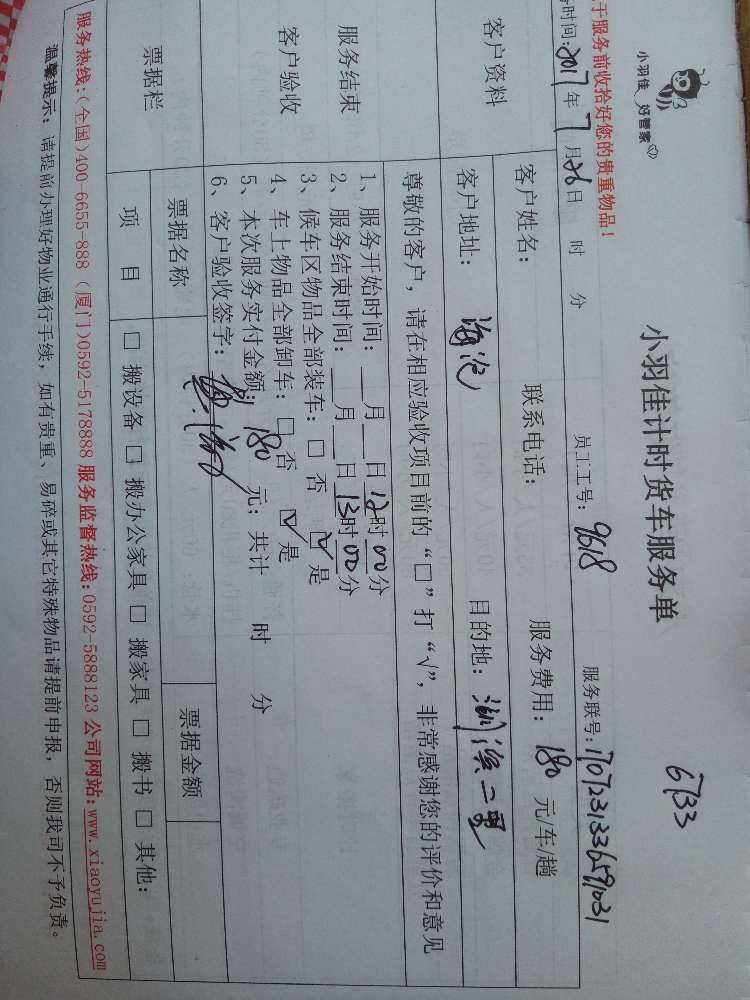 小羽佳 好管家
小羽佳计时货车服务单
6733
于服务前收拾好您的贵重物品！
时间：2017年7月26日 时 分
员工工号：9618
服务联号：170723133659031
客户资料
客户姓名：
联系电话：
服务费用：180元/车/趟
客户地址：海沧
目的地：
服务结束
客户验收
尊敬的客户，请在相应验收项目前的“□”打“√”，非常感谢您的评价和意见
1、服务开始时间：___月___日12时00分
2、服务结束时间：___月___日13时00分
3、候车区物品全部装车：□ 否 ☑ 是
4、车上物品全部卸车：□ 否 ☑ 是
5、本次服务实付金额：180元；共计 时 分
6、客户验收签字：
票据栏
票据名称
票据金额
项目
□ 搬设备 □ 搬办公家具 □ 搬家具 □ 搬书 □ 其他：
服务热线：(全国)400-6655-888 (厦门)0592-5178888 服务监督热线：0592-5888123 公司网站：www.xiaoyujia.com
温馨提示：请提前办理好物业通行手续，如有贵重、易碎或其它特殊物品请提前申报，否则我司不予负责。